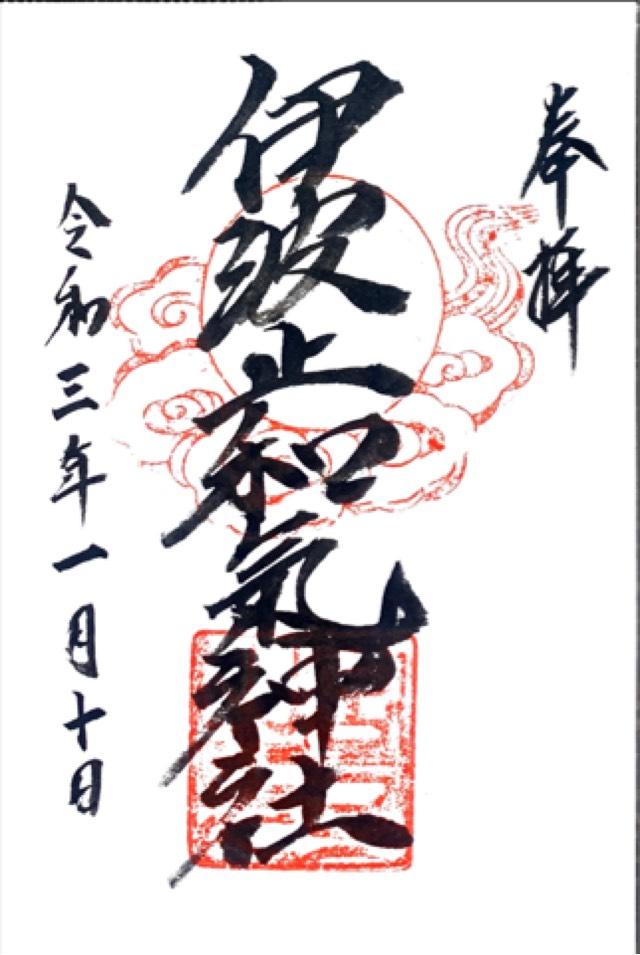 奉拝
伊波止和氣神社
令和三年一月十日